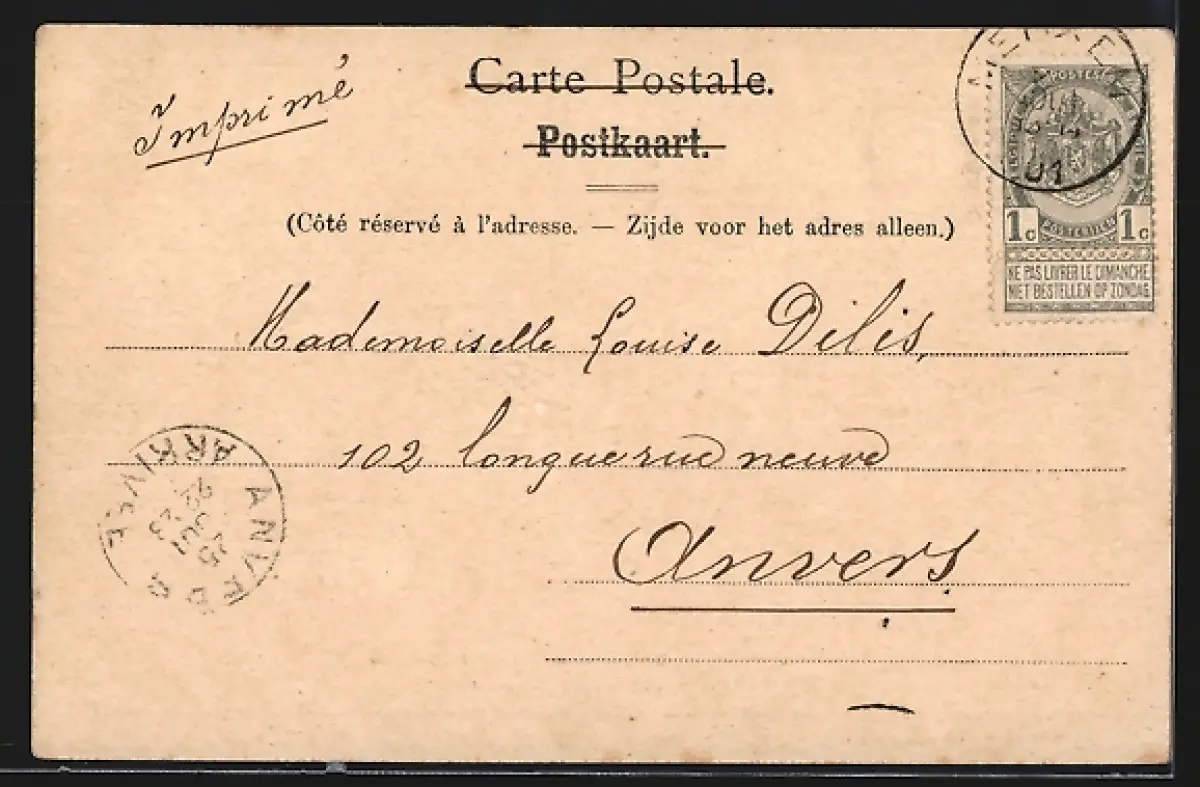 Carte Postale.
Imprimé
Postkaart.
(Côté réservé à l'adresse. — Zijde voor het adres alleen.)
POSTES
01
1c 1c
NE PAS LIVRER LE DIMANCHE
NIET BESTELLEN OP ZONDAG
Mademoiselle Louise Dilis,
102 longue rue neuve
Anvers
ANVERS
25